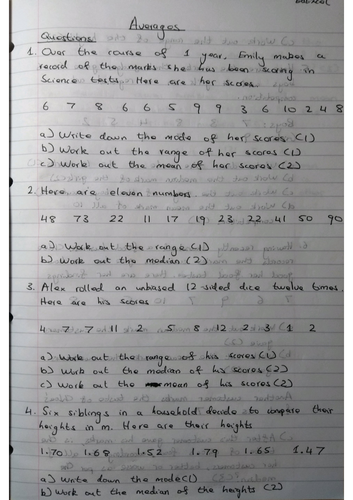 Averages
Questions:
1. Over the course of 1 year, Emily makes a
record of the marks she has been scoring in
Science tests. Here are her scores
6 7 8 6 6 5 9 9 3 6 10 2 4 8
a) Write down the mode of her scores (1)
b) Work out the range of her scores (1)
c) Work out the mean of her scores (2)
2. Here are eleven numbers.
48 73 22 11 17 19 23 22 41 50 90
a) Work out the range (1)
b) Work out the median (2)
3. Alex rolled an unbiased 12 sided dice twelve times.
Here are his scores
4 7 7 11 2 5 8 12 2 3 1 2
a) Work out the range of his scores (1)
b) Work out the median of his scores (2)
c) Work out the mean of his scores (2)
4. Six siblings in a household decide to compare their
heights in m. Here are their heights
1.70 1.68 1.52 1.79 1.65 1.47
a) Write down the mode (1)
b) Work out the median of the heights (2)